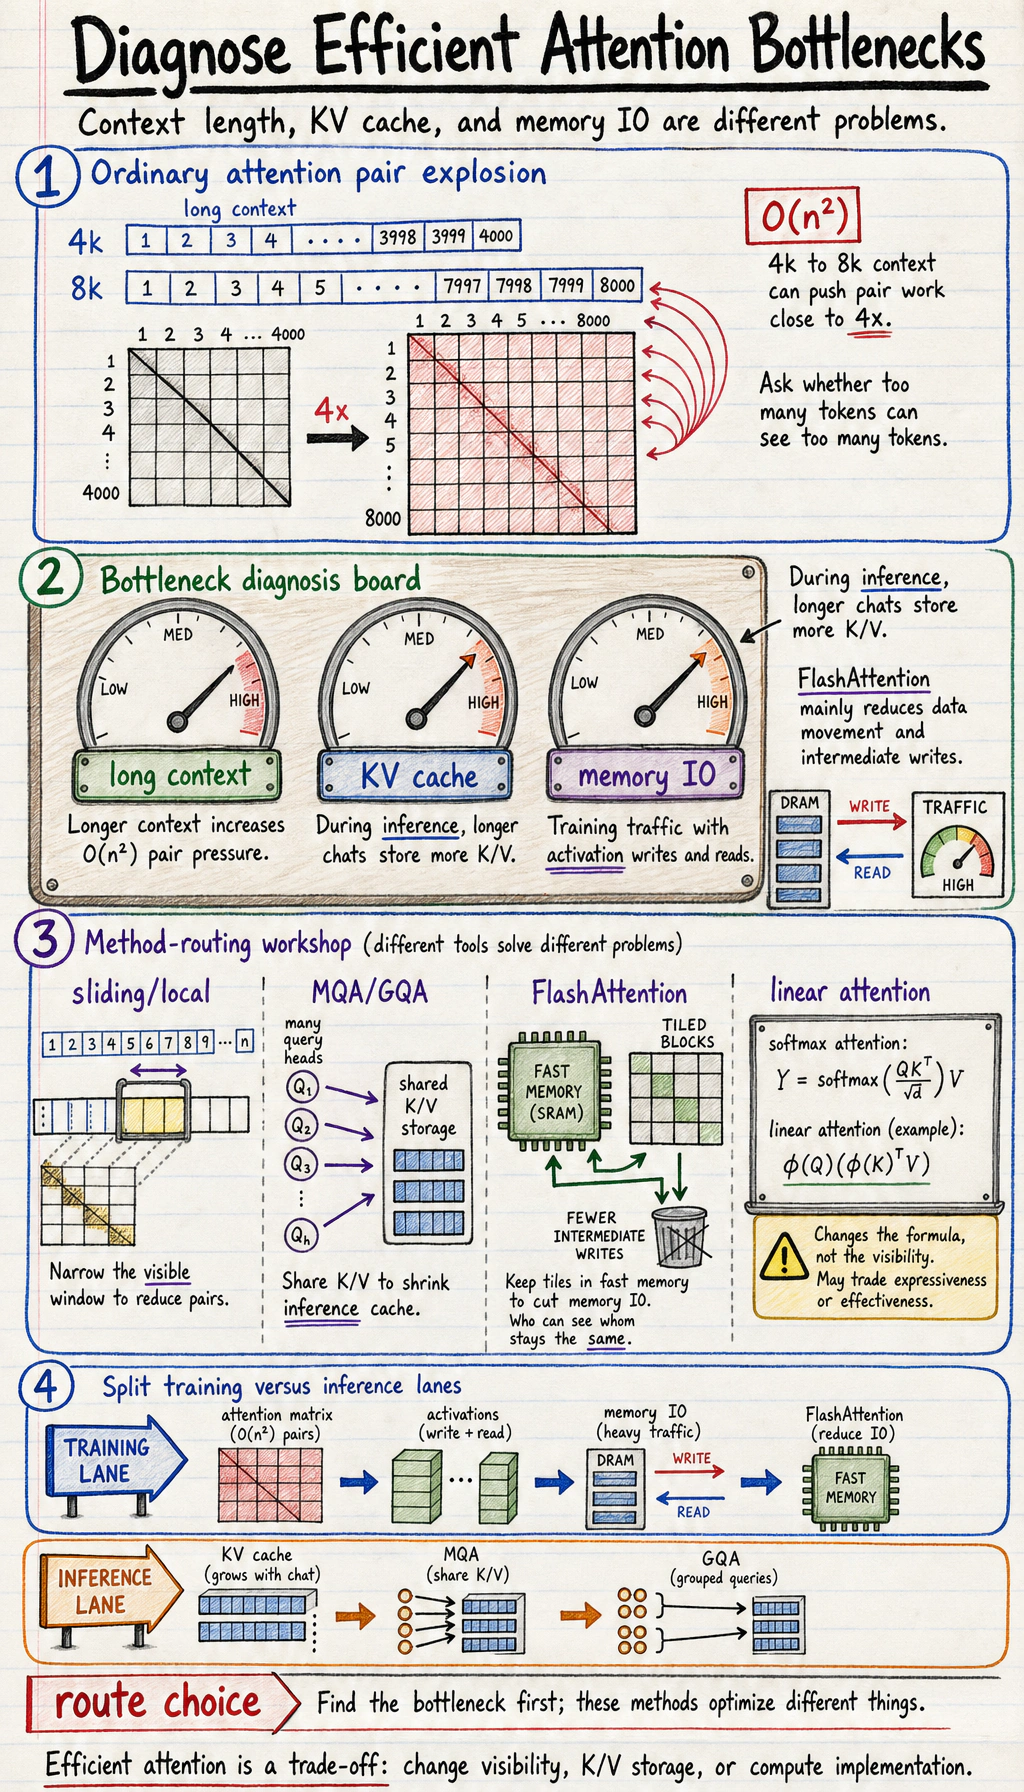 Diagnose Efficient Attention Bottlenecks
Context length, KV cache, and memory IO are different problems.
1 Ordinary attention pair explosion
long context
4k 1 2 3 4 .... 3998 3999 4000
8k 1 2 3 4 5 .... 7997 7998 7999 8000
1 2 3 4 ... 4000
1
2
3
4
⋮
4000
4x
1 2 3 4 5 ... 8000
1
2
3
4
5
⋮
8000
O(n²)
4k to 8k context
can push pair work
close to 4x.
Ask whether too
many tokens can
see too many tokens.
2 Bottleneck diagnosis board
LOW MED HIGH
long context
Longer context increases
O(n²) pair pressure.
LOW MED HIGH
KV cache
During inference, longer
chats store more K/V.
LOW MED HIGH
memory IO
Training traffic with
activation writes and reads.
During inference,
longer chats store
more K/V.
FlashAttention
mainly reduces data
movement and
intermediate writes.
DRAM
WRITE
READ
TRAFFIC
HIGH
3 Method-routing workshop (different tools solve different problems)
sliding/local
1 2 3 4 5 6 7 8 9 ... n
Narrow the visible
window to reduce pairs.
MQA/GQA
many
query
heads
Q₁
Q₂
Q₃
⋮
Qₕ
shared
K/V
storage
Share K/V to shrink
inference cache.
FlashAttention
FAST
MEMORY
(SRAM)
TILED
BLOCKS
FEWER
INTERMEDIATE
WRITES
Keep tiles in fast memory
to cut memory IO.
Who can see whom
stays the same.
linear attention
softmax attention:
Y = softmax(QKᵀ/√d)V
linear attention (example):
ϕ(Q)(ϕ(K)ᵀV)
!
Changes the formula,
not the visibility.
May trade expressiveness
or effectiveness.
4 Split training versus inference lanes
TRAINING
LANE
attention matrix
(O(n²) pairs)
activations
(write + read)
...
memory IO
(heavy traffic)
DRAM
WRITE
READ
FlashAttention
(reduce IO)
FAST
MEMORY
INFERENCE
LANE
KV cache
(grows with chat)
MQA
(share K/V)
GQA
(grouped queries)
route choice
Find the bottleneck first; these methods optimize different things.
Efficient attention is a trade-off: change visibility, K/V storage, or compute implementation.